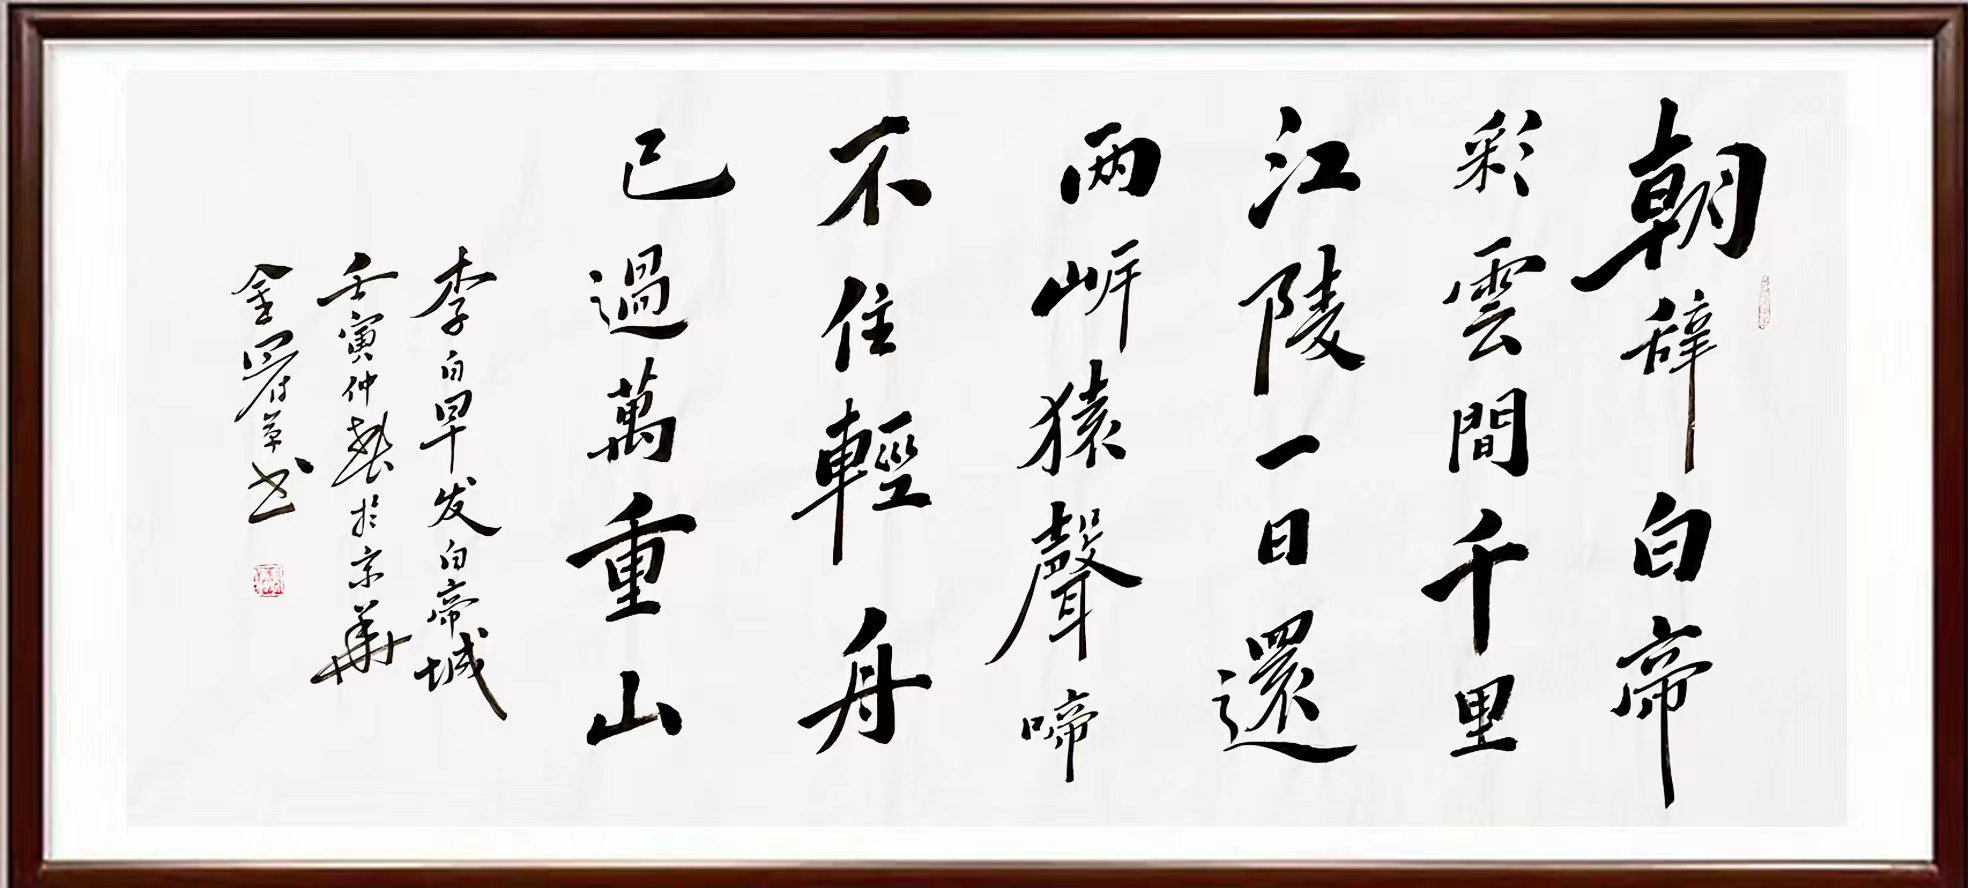 朝辞白帝
彩雲間千里
江陵一日還
兩岸猿聲啼
不住輕舟
已過萬重山
李白早发白帝城
壬寅仲於京華
金草书